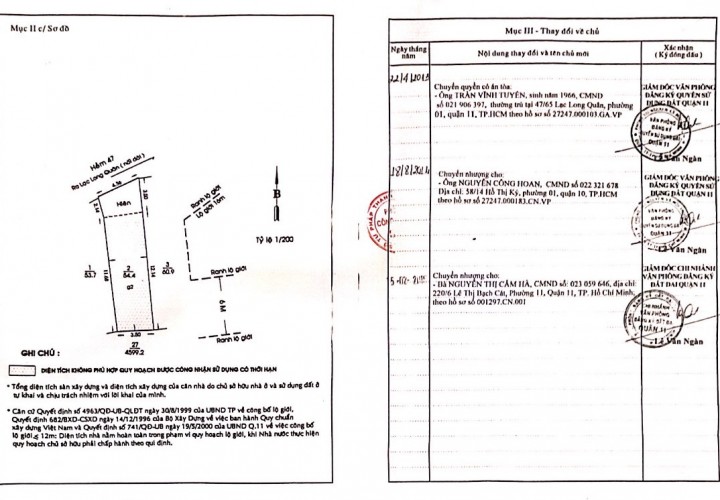 Mục II c/ Sơ đồ
Hẻm 47
Ra Lạc Long Quân ( nối dài )
4.36
Hiên
Ranh lộ giới
Lộ giới 16m
B
Tỷ lệ 1/200
1
53.7
2
54.4
3
60.9
Ranh lộ giới
6M
Ranh lộ giới
3.80
27
4599.2
GHI CHÚ :
DIỆN TÍCH KHÔNG PHÙ HỢP QUY HOẠCH ĐƯỢC CÔNG NHẬN SỬ DỤNG CÓ THỜI HẠN
* Tổng diện tích sàn xây dựng và diện tích xây dựng của căn nhà do chủ sở hữu nhà ở và sử dụng đất ở
tự khai và chịu trách nhiệm với lời khai của mình.
* Căn cứ Quyết định số 4963/QĐ-UB-QLĐT ngày 30/8/1999 của UBND TP về công bố lộ giới,
Quyết định 682/BXD-CSXD ngày 14/12/1996 của Bộ Xây Dựng về việc ban hành Quy chuẩn
xây dựng Việt Nam và Quyết định số 741/QĐ-UB ngày 19/5/2000 của UBND Q.11 về việc công bố
lộ giới ≤ 12m: Diện tích nhà nằm hoàn toàn trong phạm vi quy hoạch lộ giới, khi Nhà nước thực hiện
quy hoạch chủ sở hữu phải chấp hành theo qui định.
Mục III - Thay đổi về chủ
Ngày tháng
năm
Nội dung thay đổi và tên chủ mới
Xác nhận
( Ký đóng dấu )
Chuyển quyền có án tòa:
- Ông TRẦN VĨNH TUYÊN, sinh năm 1966, CMND
số 021 906 397, thường trú tại 47/65 Lạc Long Quân, phường
01, quận 11, TP.HCM theo hồ sơ số 27247.000103.GA.VP
GIÁM ĐỐC VĂN PHÒNG
ĐĂNG KÝ QUYỀN SỬ
DỤNG ĐẤT QUẬN 11
VĂN PHÒNG
ĐĂNG KÝ
QUYỀN SỬ DỤNG ĐẤT
QUẬN 11
Văn Ngân
Chuyển nhượng cho:
- Ông NGUYỄN CÔNG HOAN, CMND số 022 321 678
Địa chỉ: 58/14 Hồ Thị Kỷ, phường 01, quận 10, TP.HCM
theo hồ sơ số 27247.000183.CN.VP
GIÁM ĐỐC VĂN PHÒNG
ĐĂNG KÝ QUYỀN SỬ
DỤNG ĐẤT QUẬN 11
VĂN PHÒNG
ĐĂNG KÝ
QUẬN 11
Văn Ngân
Chuyển nhượng cho:
- Bà NGUYỄN THỊ CẨM HÀ, CMND số: 023 059 646, địa chỉ:
220/6 Lê Thị Bạch Cát, Phường 11, Quận 11, TP. Hồ Chí Minh,
theo hồ sơ số 001297.CN.001
GIÁM ĐỐC CHI NHÁNH
VĂN PHÒNG ĐĂNG KÝ
ĐẤT ĐAI QUẬN 11
CHI NHÁNH
VĂN PHÒNG
ĐĂNG KÝ ĐẤT ĐAI
QUẬN 11
Lê Văn Ngân